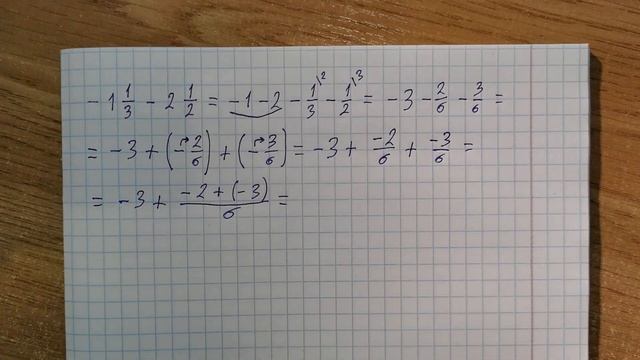 - 1 1/3 - 2 1/2 = -1 - 2 - 1/3 \2 - 1/2 \3 = -3 - 2/6 - 3/6 =
= -3 + (- 2/6) + (- 3/6) = -3 + -2/6 + -3/6 =
= -3 + -2 + (-3)/6 =